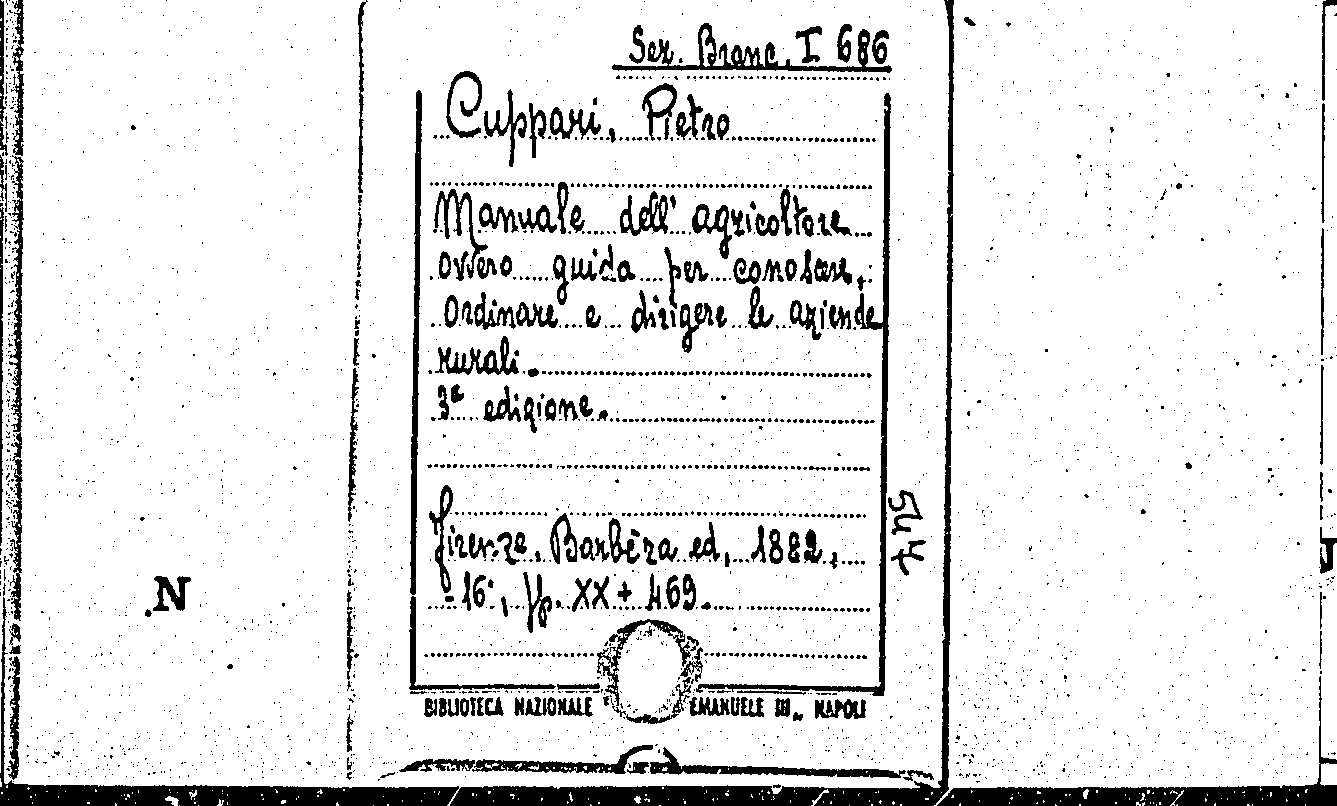 Sez. Branc. I 686
Cuppari, Pietro
Manuale dell' agricoltore
ovvero guida per conoscere,
ordinare e dirigere le aziende
rurali.
3a edizione.
Firenze. Barbèra ed, 1882,
-16°, pp. XX + 469.
544
N
BIBLIOTECA NAZIONALE " EMANUELE III„ NAPOLI